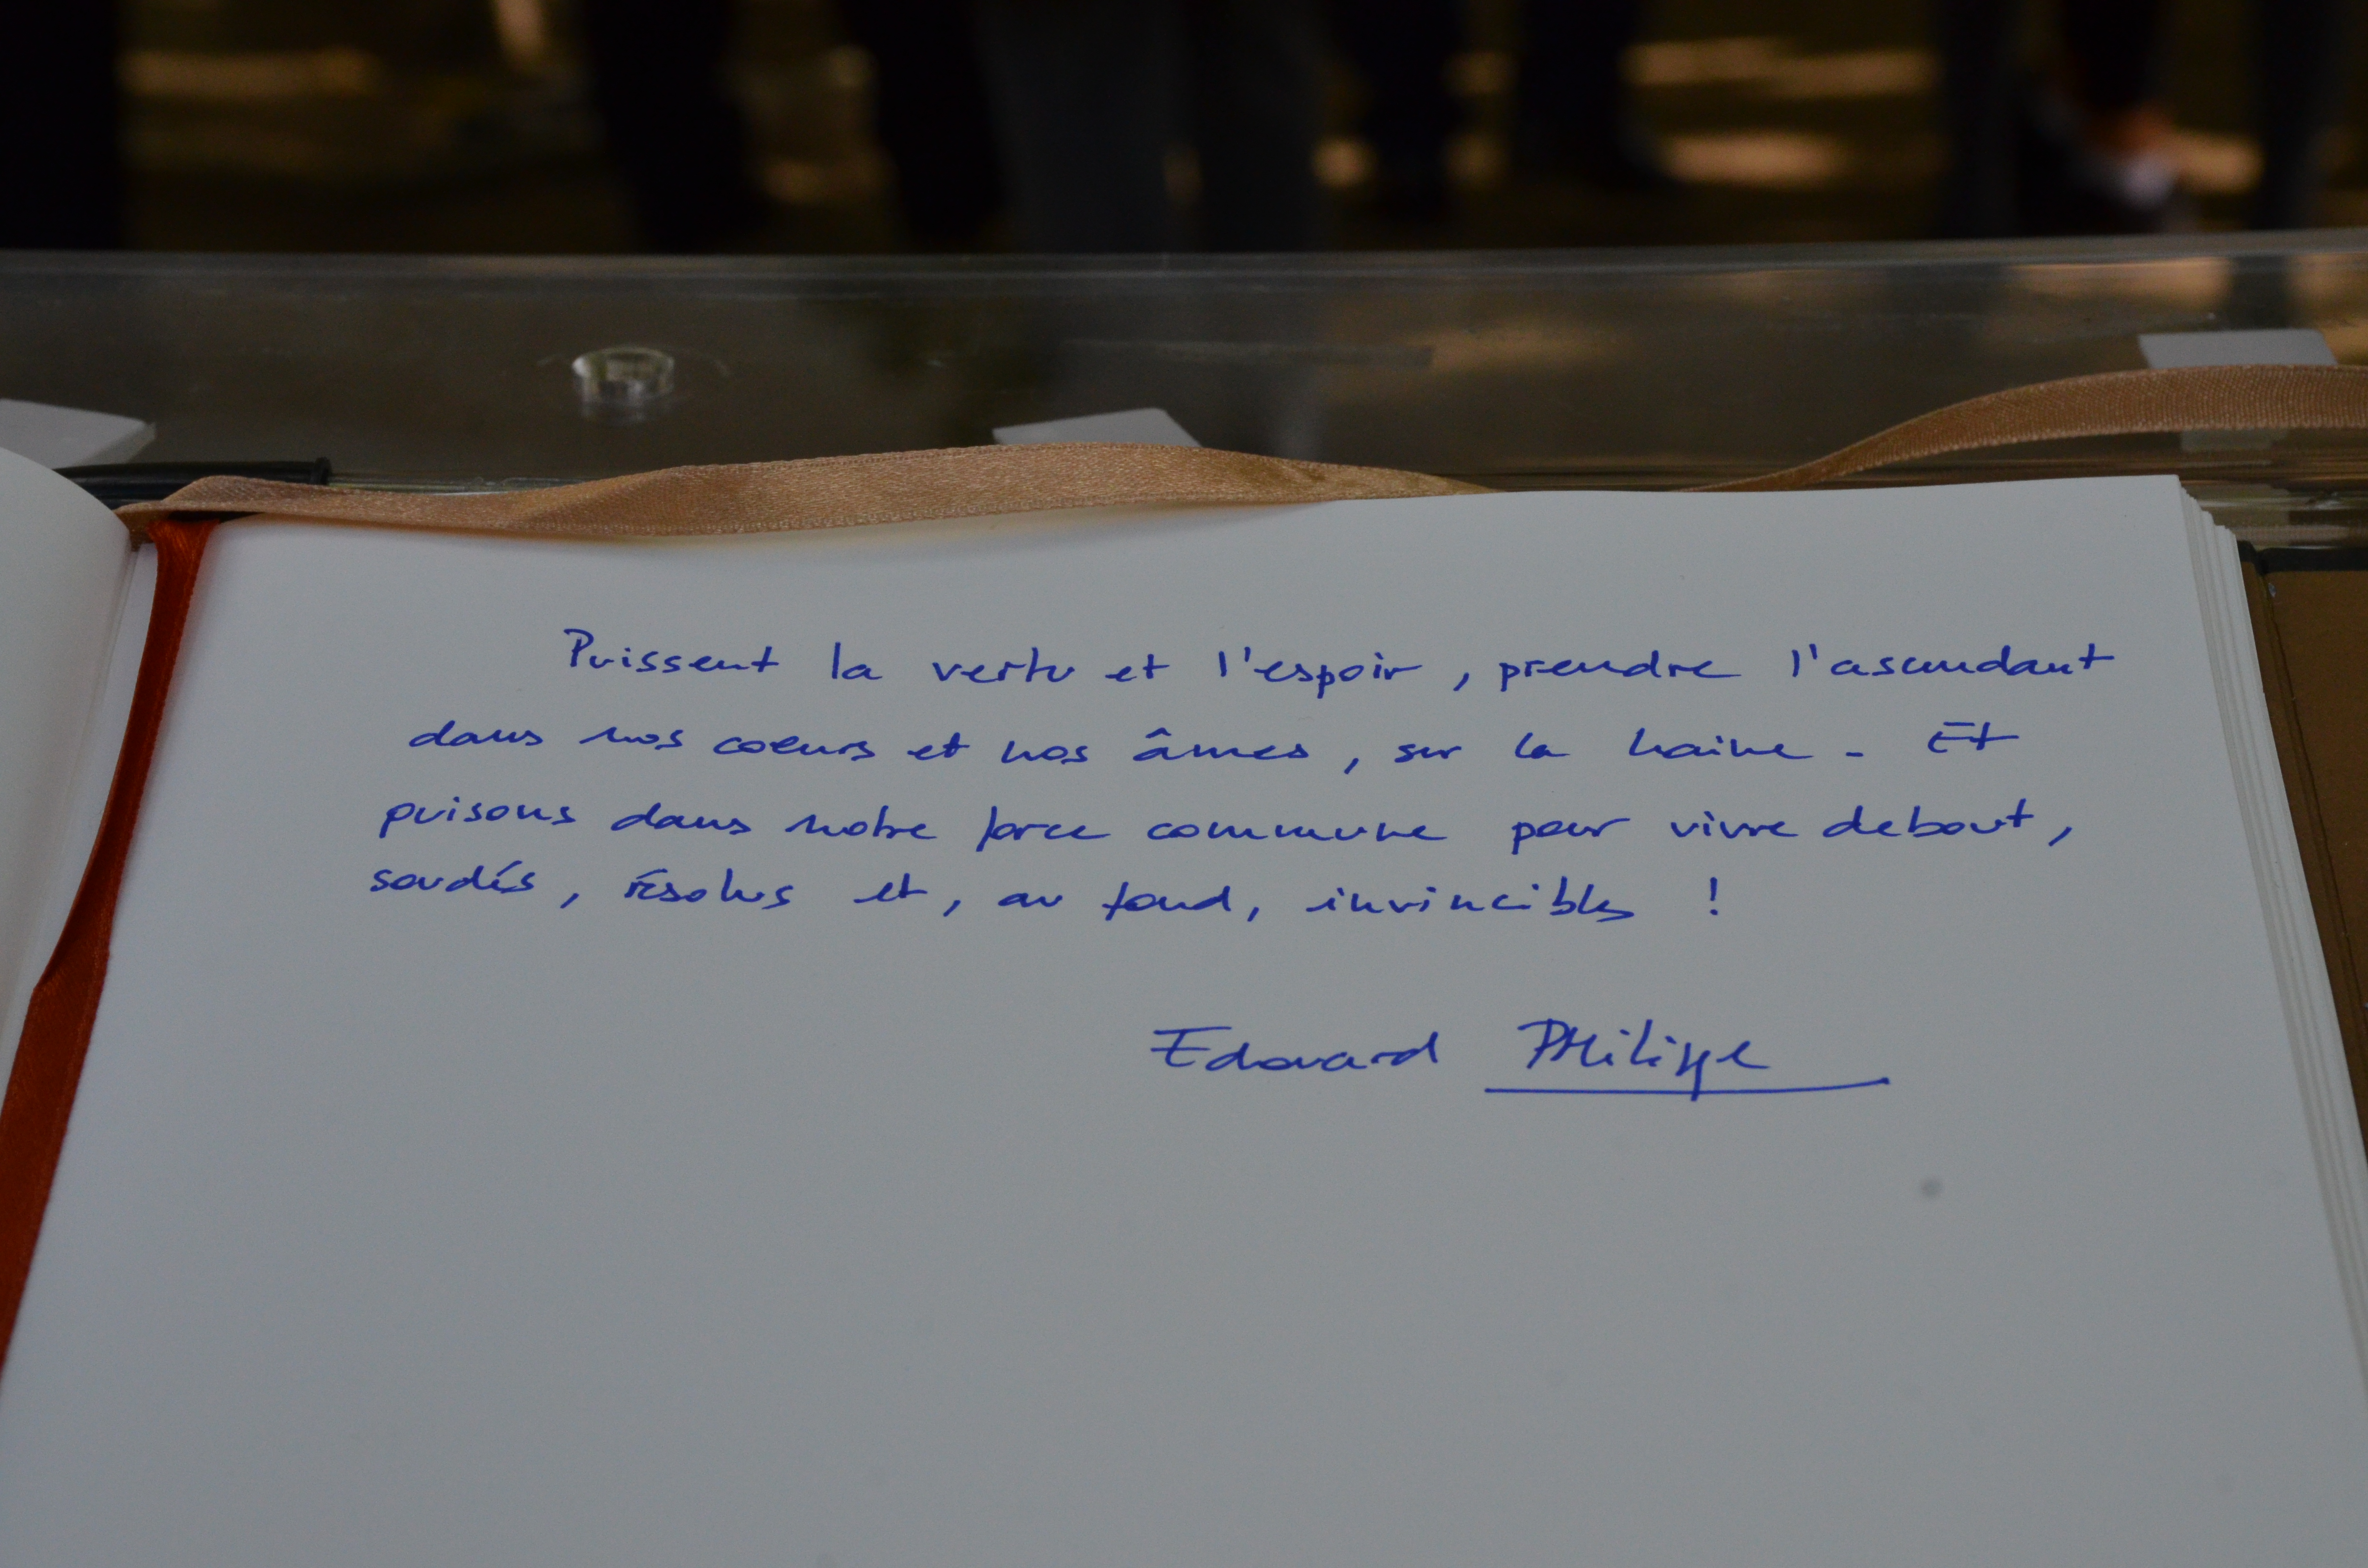 Puissent la vertu et l'espoir, prendre l'ascendant
dans nos coeurs et nos âmes, sur la haine. Et
puisons dans notre force commune pour vivre debout,
soudés, résolus et, au fond, invincibles !
Edouard Philippe